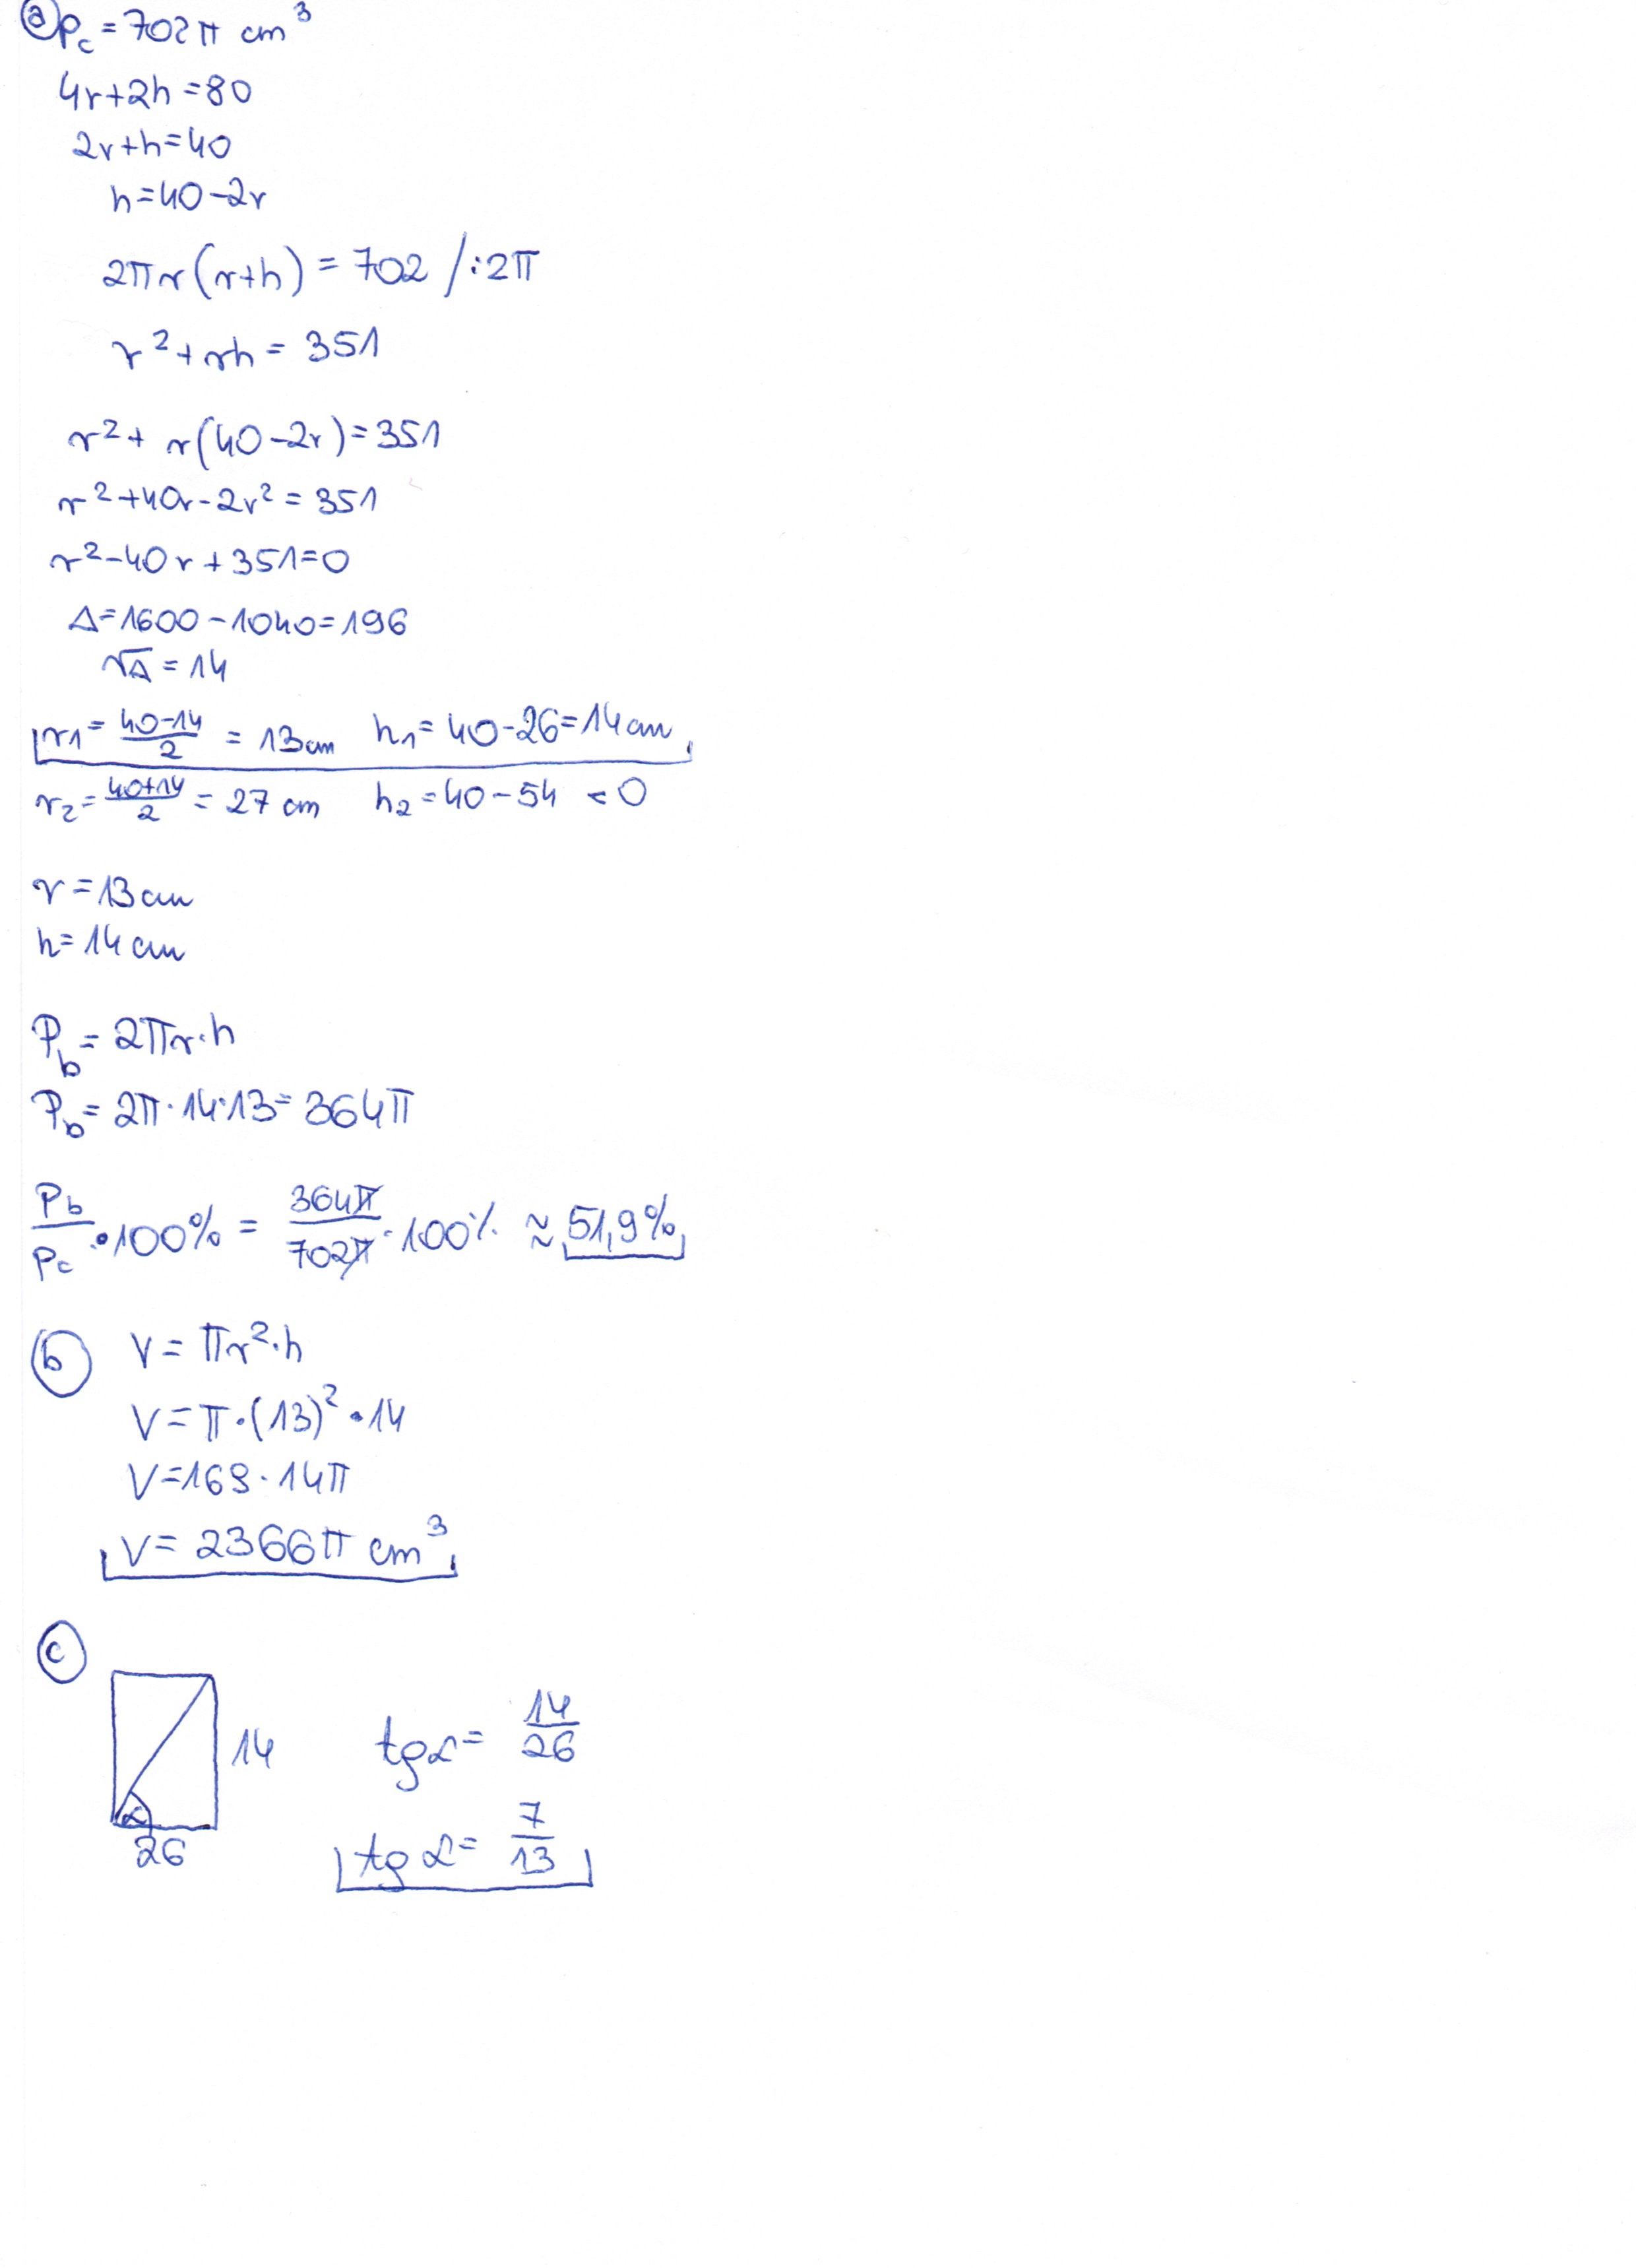 a) Pc = 702π cm³
4r+2h=80
2r+h=40
h=40-2r
2πr(r+h) = 702 /:2π
r²+rh = 351
r²+ r(40-2r)=351
r²+40r-2r²=351
r²-40r+351=0
Δ=1600-1040=196
√Δ=14
r1= (40-14)/2 = 13cm h1= 40-26=14cm
r2= (40+14)/2 = 27 cm h2=40-54 <0
r=13cm
h=14cm
Pb= 2πr·h
Pb= 2π·14·13= 364π
Pb/Pc ·100% = 364π/702π ·100% ≈ 51,9%
b) V= πr²·h
V=π·(13)²·14
V=169·14π
V= 2366π cm³
c)
14
α
26
tgα= 14/26
tgα= 7/13